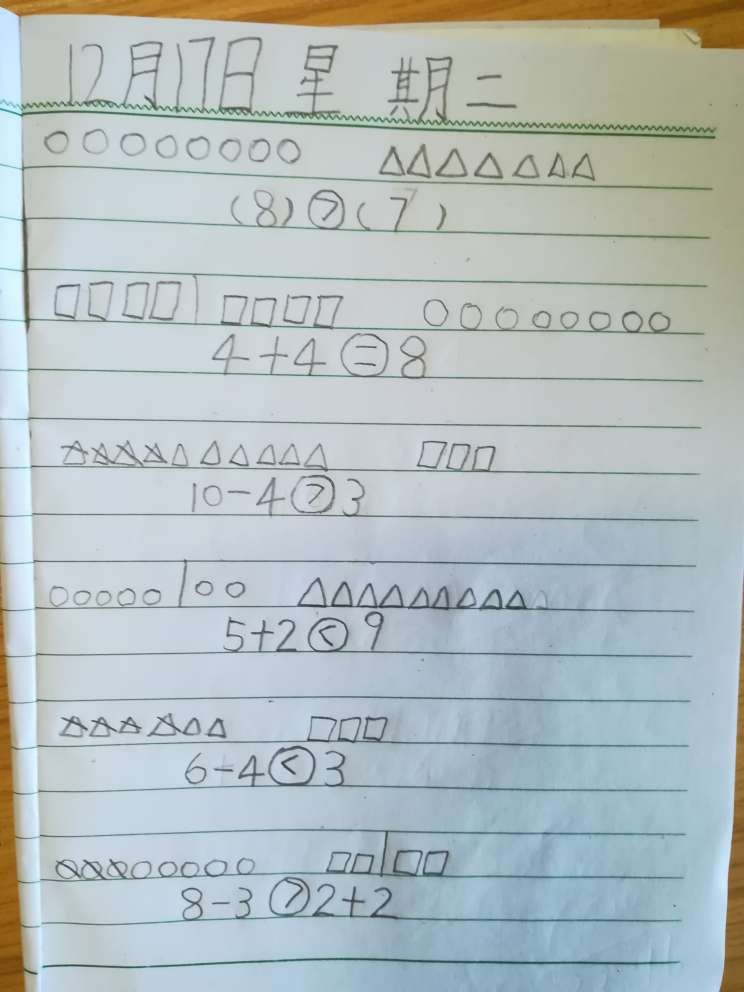 12月17日 星期二
(8)>(7)
4+4=8
10-4>3
5+2<9
6-4<3
8-3>2+2